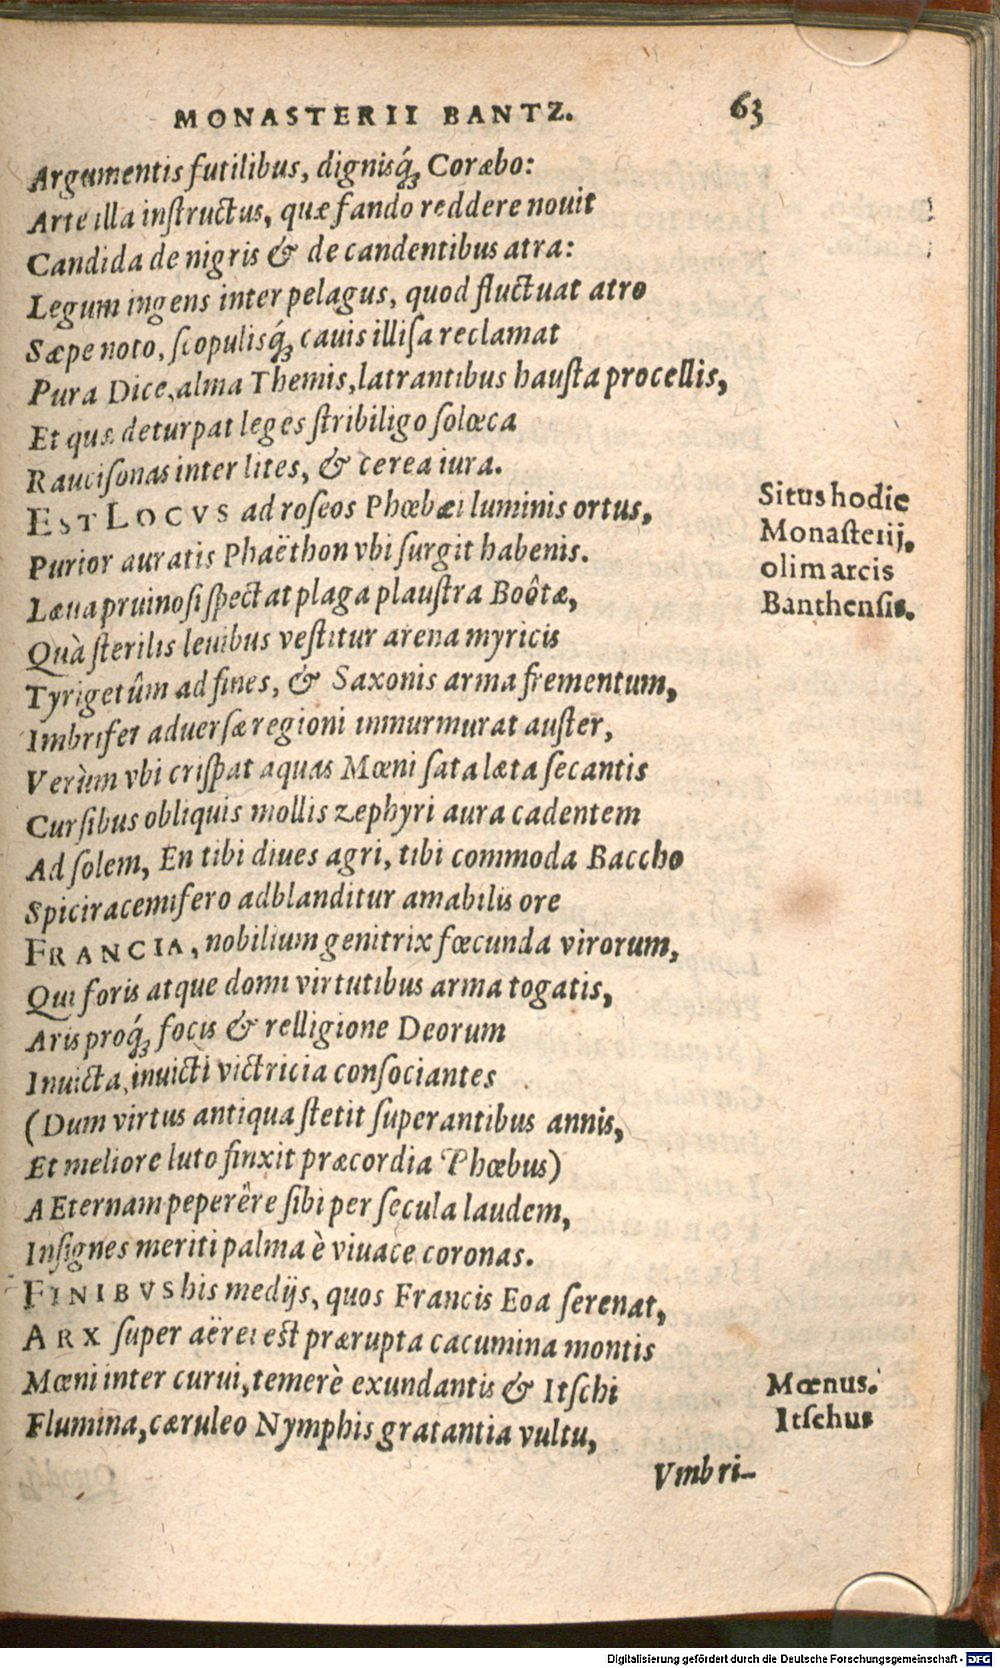 MONASTERII BANTZ. 63
Argumentis futilibus, dignisq́ꝫ Coræbo:
Arte illa inſtructus, quæ fando reddere nouit
Candida de nigris & de candentibus atra:
Legum ingens inter pelagus, quod fluctuat atro
Sæpe noto, ſcopulisq́ꝫ cauis illiſa reclamat
Pura Dice, alma Themis, latrantibus hauſta procellis,
Et quæ deturpat leges ſtribiligo ſolœca
Rauciſonas inter lites, & cerea iura.
EST LOCVS ad roſeos Phœbæi luminis ortus,
Purior auratis Phaëthon vbi ſurgit habenis.
Læua pruinoſi ſpectat plaga plauſtra Boôtæ,
Quà ſterilis leuibus veſtitur arena myricis
Tyrigetûm ad fines, & Saxonis arma frementum,
Imbrifer aduerſæ regioni immurmurat auſter,
Verùm vbi criſpat aquas Mœni ſata læta ſecantis
Curſibus obliquis mollis zephyri aura cadentem
Ad ſolem, En tibi diues agri, tibi commoda Baccho
Spici racemifero adblanditur amabilis ore
FRANCIA, nobilium genitrix fœcunda virorum,
Qui foris atque domi virtutibus arma togatis,
Aris proq́ꝫ focis & relligione Deorum
Inuicta, inuicti victricia conſociantes
(Dum virtus antiqua ſtetit ſuperantibus annis,
Et meliore luto finxit præcordia Phœbus)
AEternam peperêre ſibi per ſecula laudem,
Inſignes meriti palma è viuace coronas.
FINIBVS his medijs, quos Francis Eoa ſerenat,
ARX ſuper aërei eſt prærupta cacumina montis
Mœni inter curui, temerè exundantis & Itſchi
Flumina, cæruleo Nymphis gratantia vultu,
Vmbri-
Situs hodie
Monaſterij,
olim arcis
Banthenſis.
Mœnus.
Itſchus
Digitalisierung gefördert durch die Deutsche Forschungsgemeinschaft - DFG